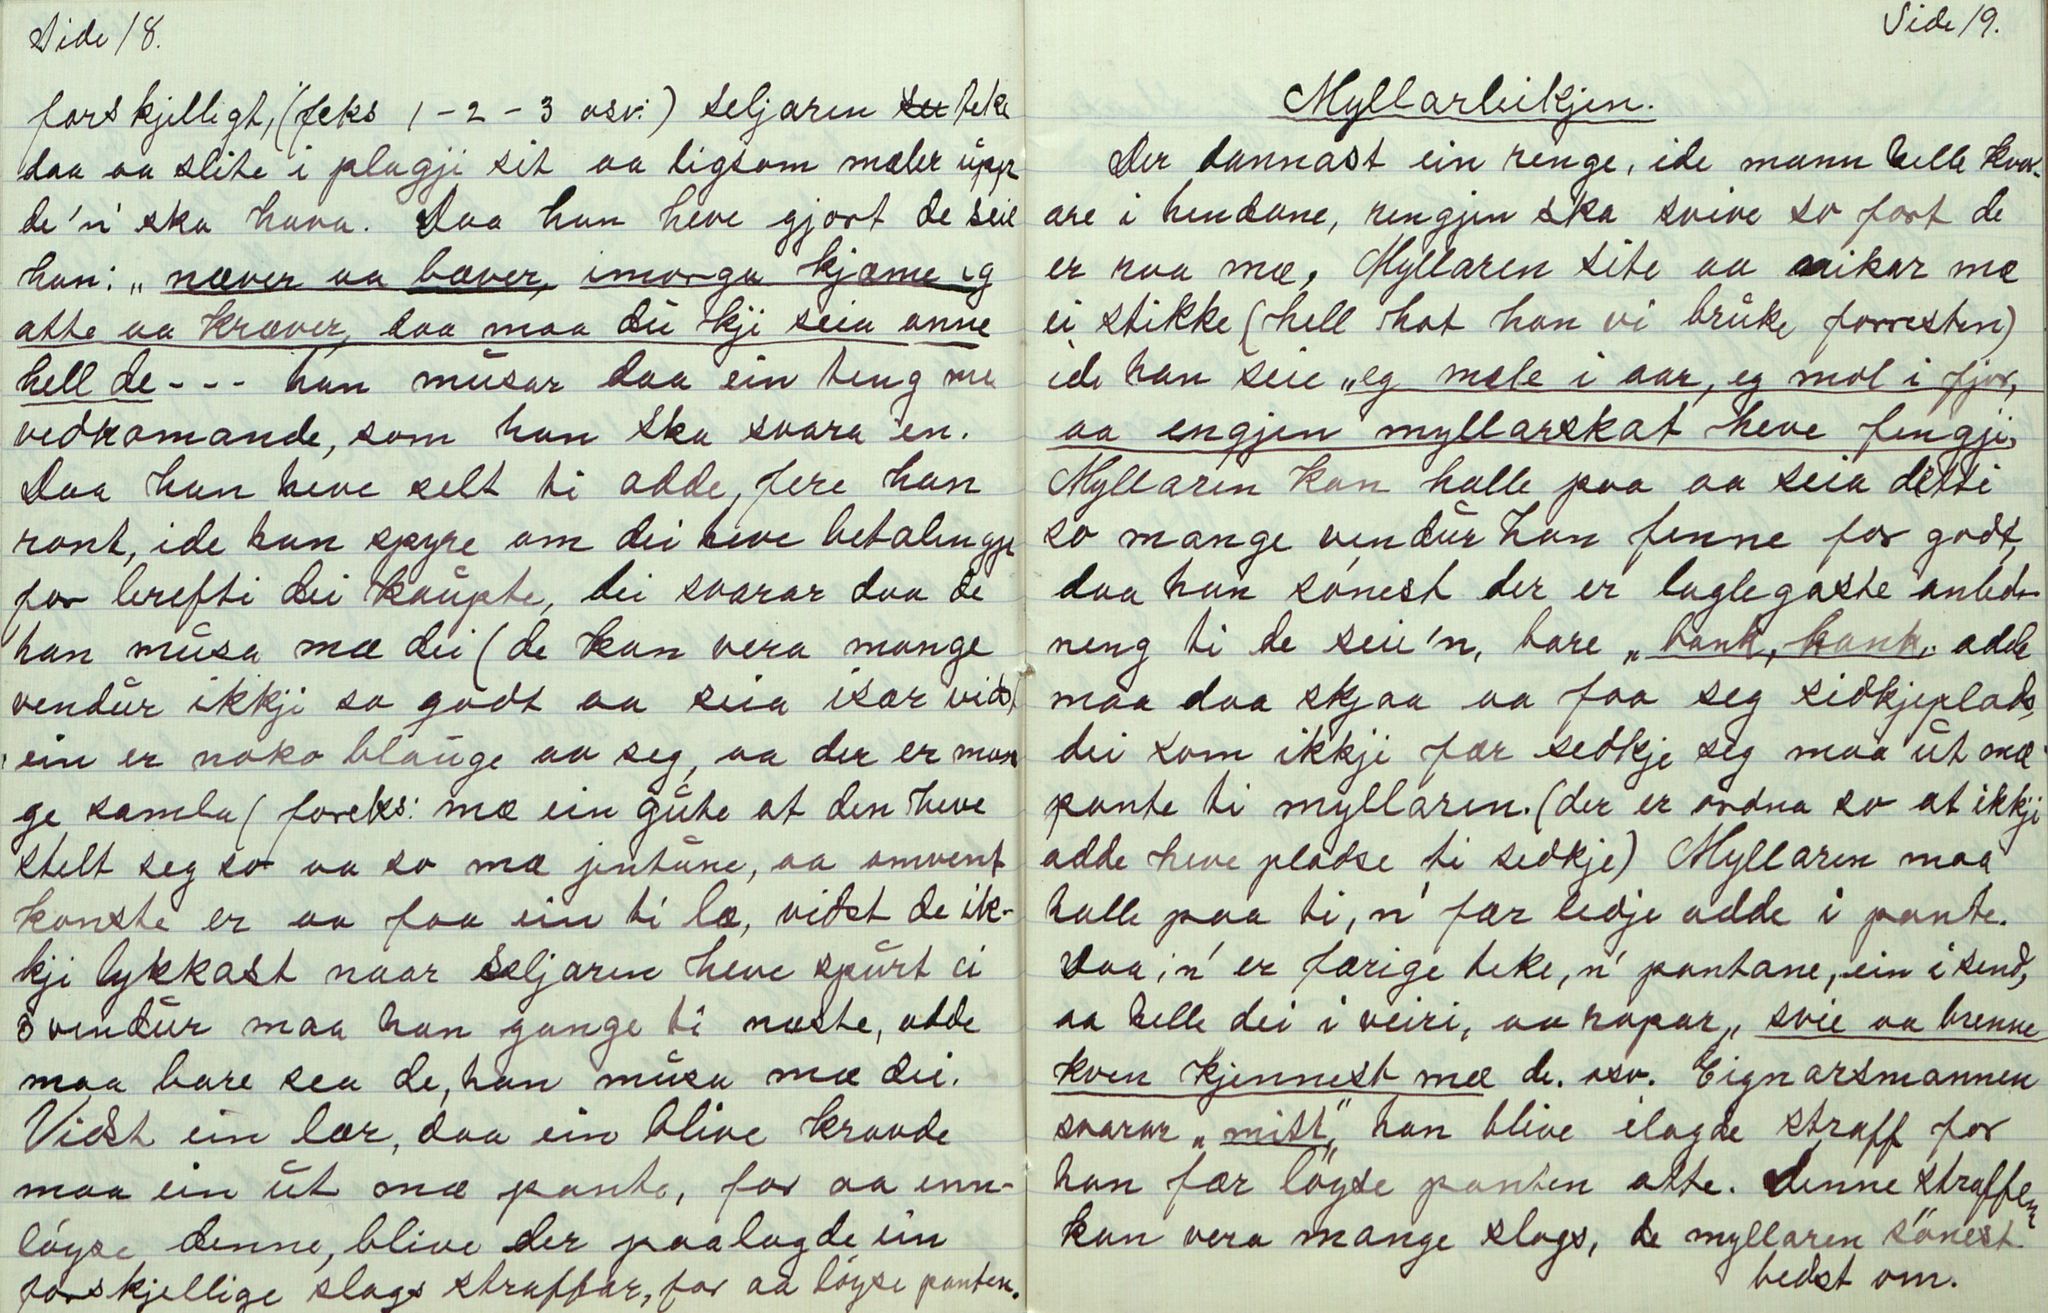 Side 18.
forskjelligt, (feks 1-2-3 osv:) seljaren teke
daa aa slite i plagji sit aa ligsom mæler upp
de'n' ska hava. Daa han heve gjort de seie
han: „næver aa bæver, imorga kjæme eg
atte aa kræver, daa maa du kji seia anne
hell de--- han musar daa ein teng me
vedkomande, som han ska svara en.
Daa han heve selt ti adde, fere han
ront, ide han spyre om dei heve betalingji
for krefti dei kaupte, dei svarar daa de
han musa mæ dei (de kan vera mange
vendur ikkji so godt aa seia især vidst
ein er noko blauge aa seg, aa der er man
ge samla (foreks: mæ ein gute at den heve
stelt seg so aa so mæ jentune, aa omvent
konste er aa faa ein ti læ, vidst de ik-
kji lykkast naar seljaren heve spurt ei
3 vendur maa han gange ti næste, adde
maa bare sea de, han musa mæ dei.
Vidst ein lær, daa ein blive kravde
maa ein ut mæ pante, for aa enn-
löyse denne, blive der paalagde ein
forskjellige slags straffar, for aa löyse panten.
Side 19.
Myllarleikjen.
Der dannast ein renge, ide mann helle kvar-
are i hendane, rengjen ska svive so fort de
er raa mæ, Myllaren site aa mikar mæ
ei stikke (hell hot han vi bruke forresten)
ide han seie „eg mæle i aar, eg mol i fjor,
aa engjen myllarskat heve fengji,
Myllaren kan halle paa aa seia detti
so mange vendur han fenne for godt,
daa han sönest der er laglegaste anled-
neng ti de seie'n, bare „bank, bank," adde
maa daa skjaa aa faa seg sidkjeplads,
dei som ikkji fær sedkje seg maa ut mæ
pante ti myllaren. (der er ordna so at ikkji
adde heve pladse ti sedkje) Myllaren maa
halle paa ti, n' fær ledje adde i pante.
Daa, 'n' er færige teke, n' pantane, ein i send,
aa helle dei i veiri, aa ropar „svie aa brenne
kven kjennest mæ de. osv. Eignarsmannen
svarar „mitt," han blive ilagde straff for
han fær löyse panten atte. Denne straffen
kan vera mange slags, de myllaren sönest
bedst om.